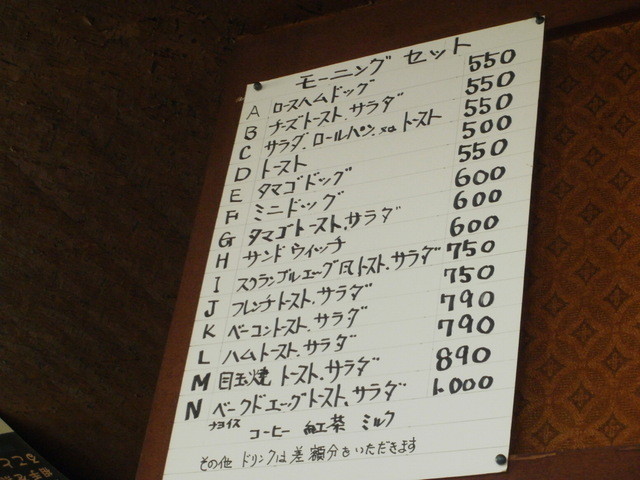 モーニング セット
A ロースハムドッグ 550
B チーズトースト.サラダ 550
C サラダ.ロールパン. トースト 550
D トースト 500
E タマゴドッグ 550
F ミニドッグ 600
G タマゴトースト.サラダ 600
H サンドウィッチ 600
I スクランブルエーグ トースト.サラダ 750
J フレンチトースト.サラダ 750
K ベーコントースト.サラダ 790
L ハムトースト.サラダ 790
M 目玉焼 トースト.サラダ 890
N ベークドエーグトースト.サラダ 1.000
チョイス コーヒー 紅茶 ミルク
その他 ドリンクは差額分をいただきます